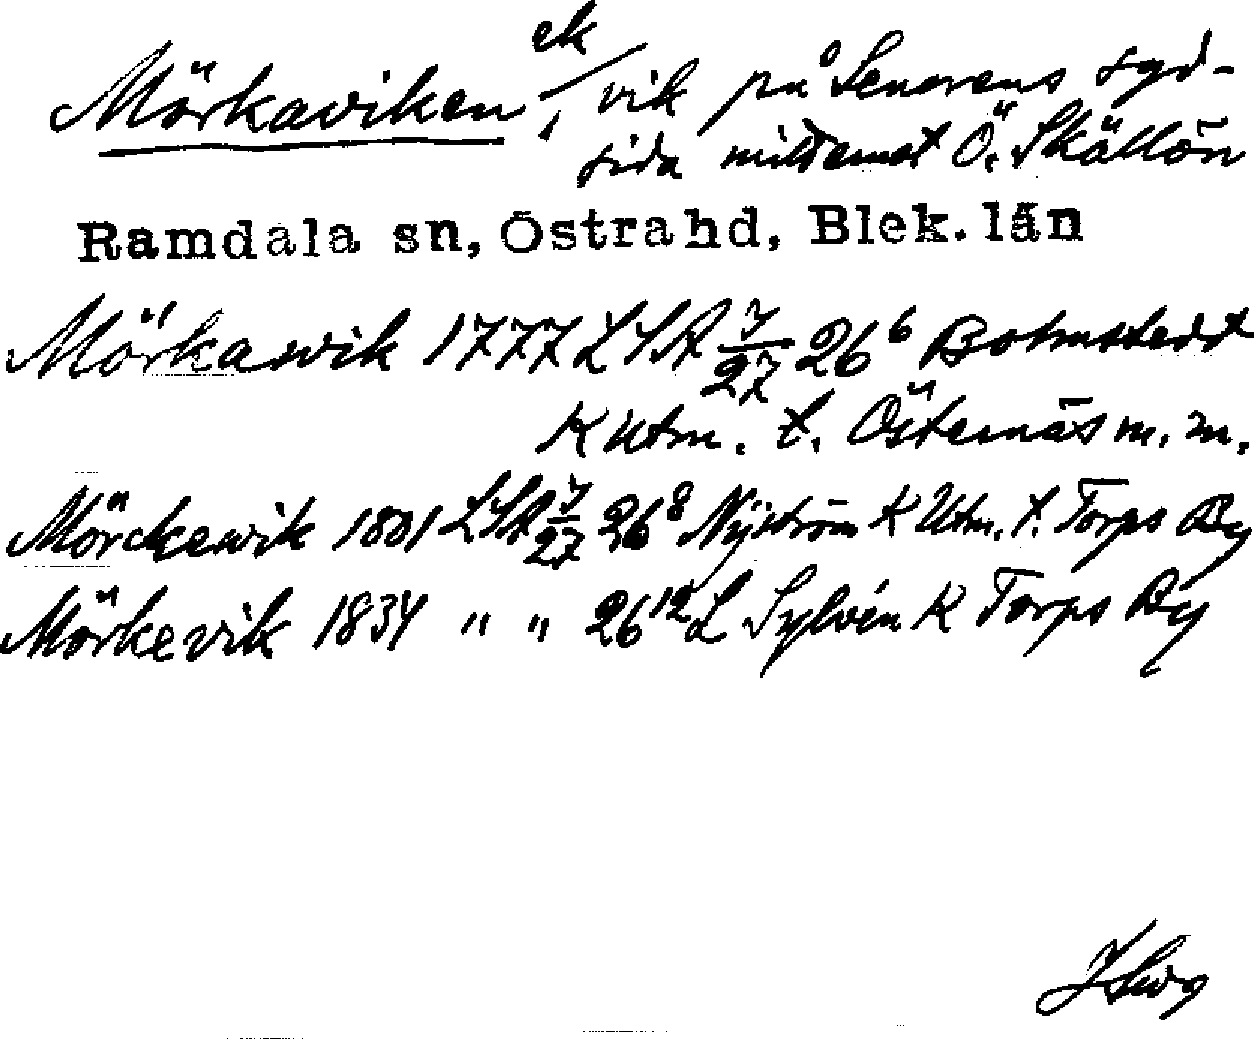 Mörkaviken ek, vik på Senorens syd-
sida mittemot Ö. Skällön
Ramdala sn, Östra hd, Blek. län
Mörkawik 1777 LSA 7/27 26⁶ Bohmstedt
K Utm. t. Östernäs m. m.
Mörckewik 1801 LSA 7/27 26⁸ Nyström K Utm. t. Torps By
Mörkevik 1834 " " 26¹² L Sylvén K Torps By